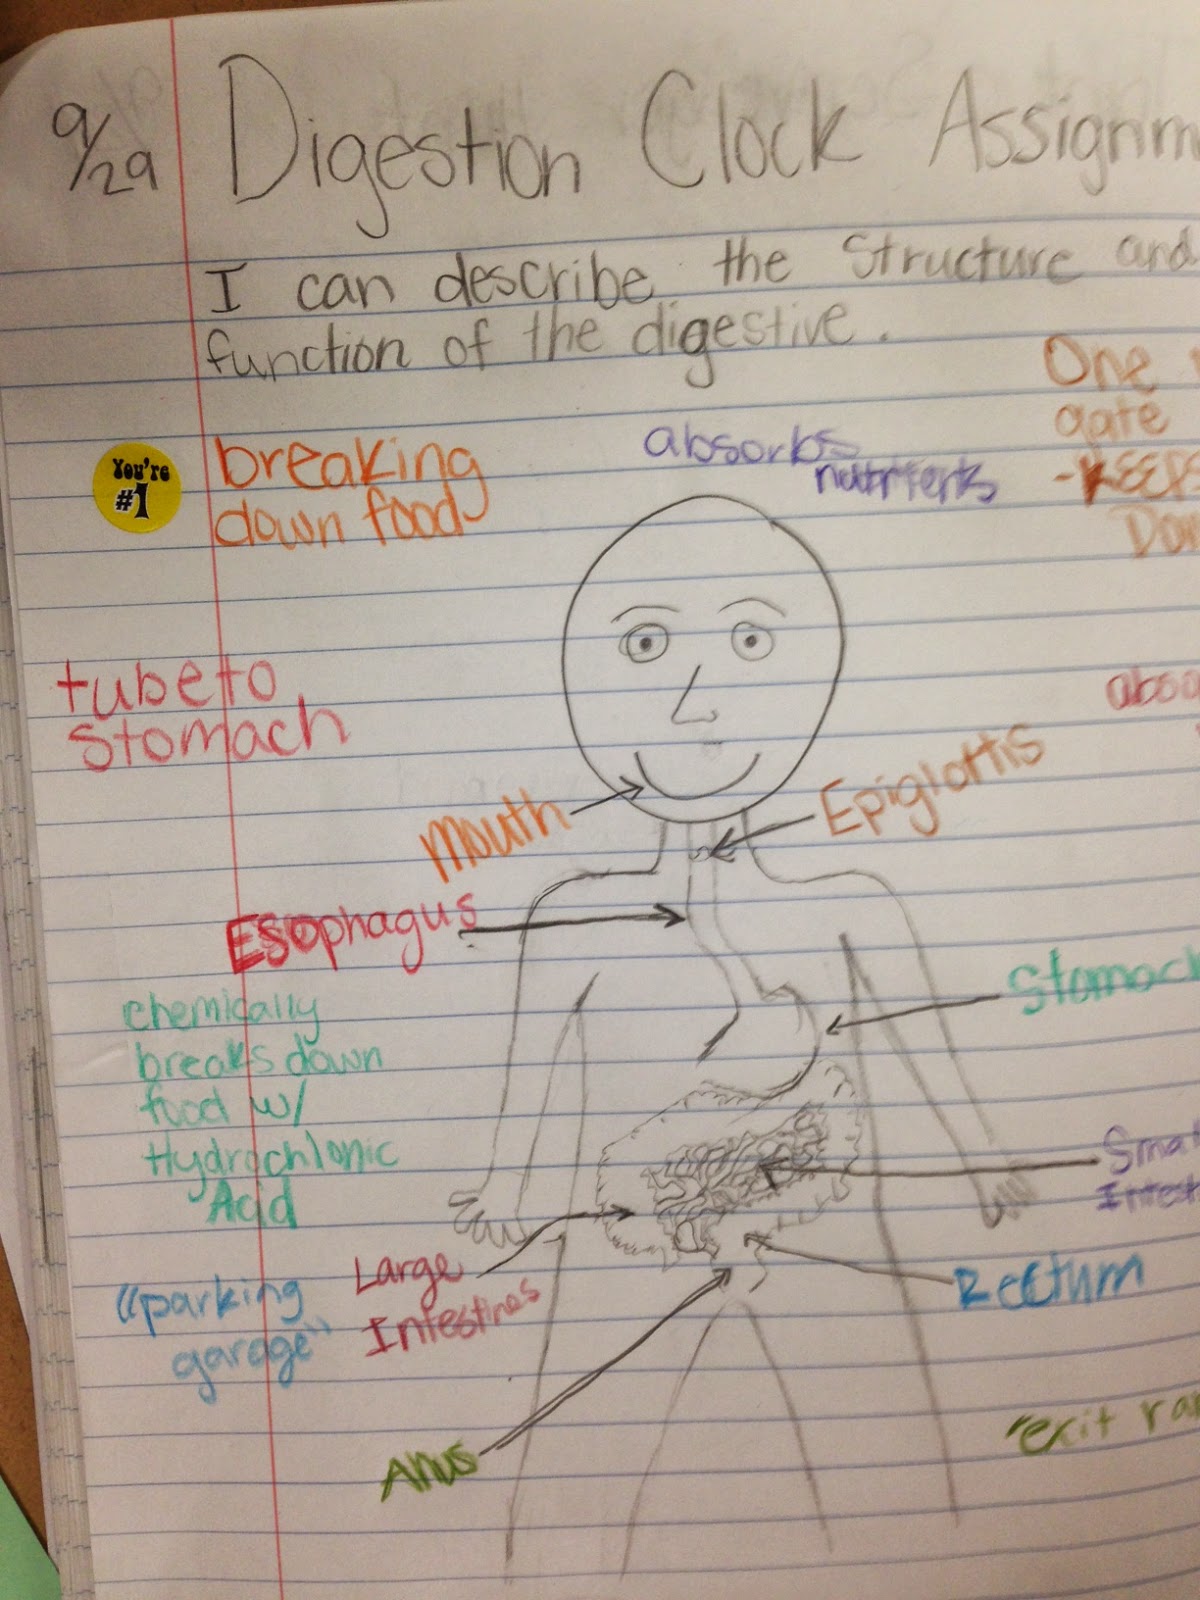 9/29 Digestion Clock Assignm
I can describe the structure and
function of the digestive.
You're
#1
breaking
down food
absorbs
nutrients
One
gate
-KEEPS
Dow
tube to
stomach
abso
mouth
Epiglottis
Esophagus
Stomach
chemically
breaks down
food w/
Hydrochloric
Acid
Small
Intest
Large
Intestines
"parking
garage"
Rectum
Anus
"exit ra